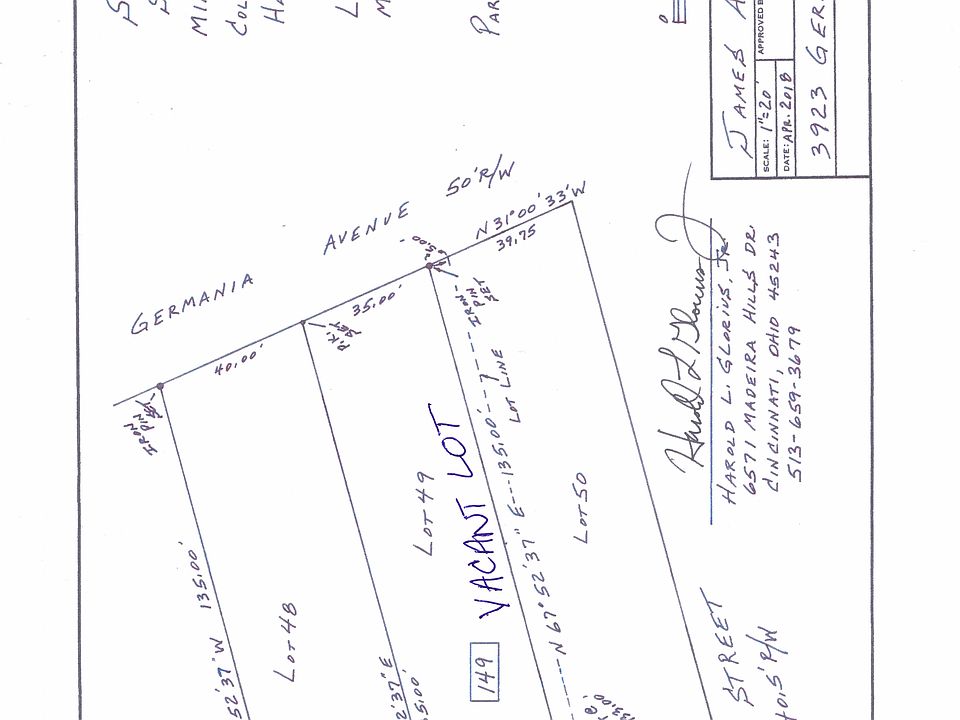 GERMANIA AVENUE 50' R/W
N 31° 00' 33" W
39.75
5.00
35.00'
40.00'
IRON PIN SET
P.K. SET
IRON PIN SET
135.00'
52' 37" W
LOT 48
2' 37" E
5.00'
LOT 49
VACANT LOT
149
N 67° 52' 37" E---135.00'
LOT LINE
LOT 50
STREET
40.5' R/W
Harold L Glorius Jr
HAROLD L. GLORIUS, JR.
6571 MADEIRA HILLS DR.
CINCINNATI, OHIO 45243
513-659-3679
JAMES A
SCALE: 1"=20'
APPROVED B
DATE: APR. 2018
3923 GER
MI
COL
HA
L
M
PAR